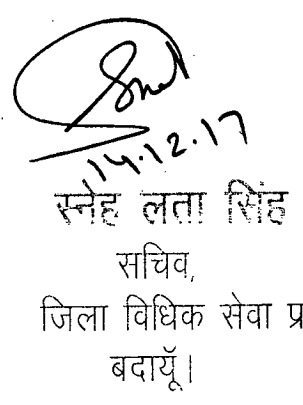 14.12.17
स्नेह लता सिंह
सचिव,
जिला विधिक सेवा प्र
बदायूॅ।